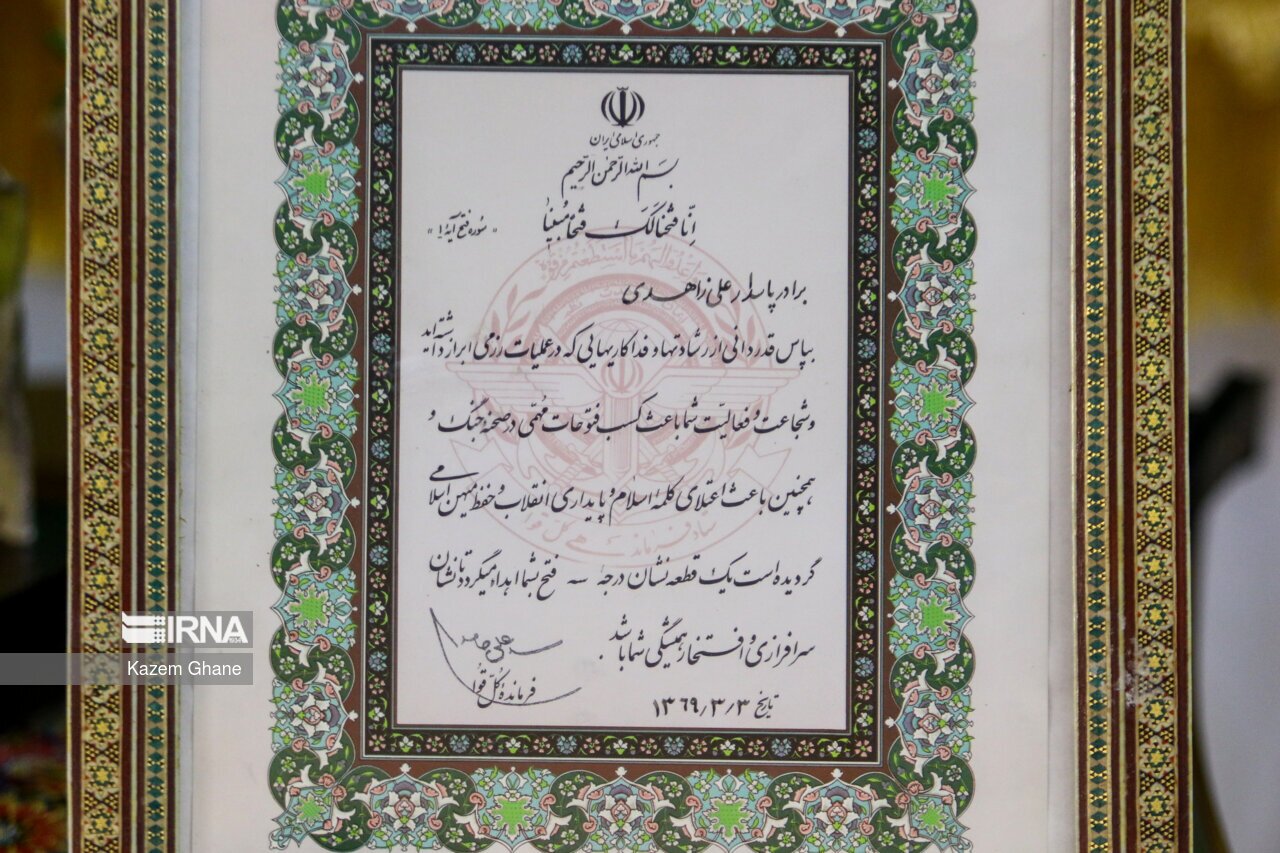 جمهوری اسلامی ایران
بسم الله الرحمن الرحیم
إنّا فتحنا لَکَ فتحاً مُبیناً « سوره فتح آیه ۱ »
برادر پاسدار علی زاهدی
بپاس قدردانی از رشادتها و فداکاریهایی که در عملیات رزمی ابراز داشته‌اید
و شجاعت و فعالیّت شما باعث کسب فتوحات مُهمّی در صحنه جنگ و
همچنین باعث اعتلای کلمه اسلام و پایداری انقلاب و حفظ میهن اسلامی
گردیده است یک قطعه نشان درجه سه فتح بشما اهداء میگردد تا نشان
سرافرازی و افتخار همیشگی شما باشد.
فرمانده کُلّ قوا
تاریخ ۱۳۶۹/۳/۳
IRNA
Kazem Ghane